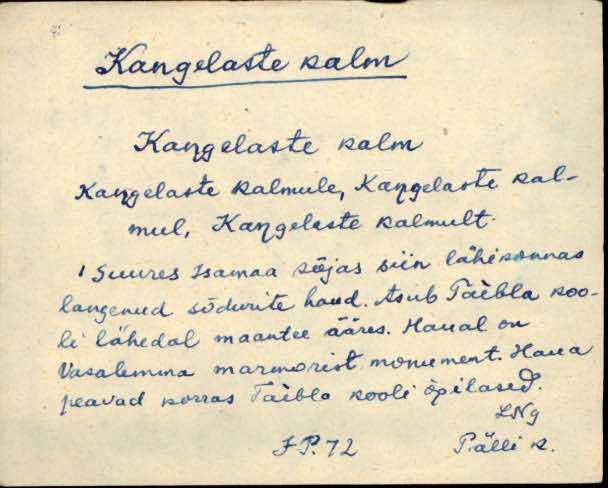 Kangelaste kalm
Kaŋgelaste kalm
Kaŋgelaste kalmule, Kaŋgelaste kal-
mul, Kaŋgelaste kalmult.
1 Suures Isamaa sõjas siin lähikonnas
langenud sõdurite haud. Asub Taebla koo-
li lähedal maantee ääres. Haual on
Vasalemma marmorist monument. Haua
peavad korras Taebla kooli õpilased.
LNg
JP. 72 Pälli k.